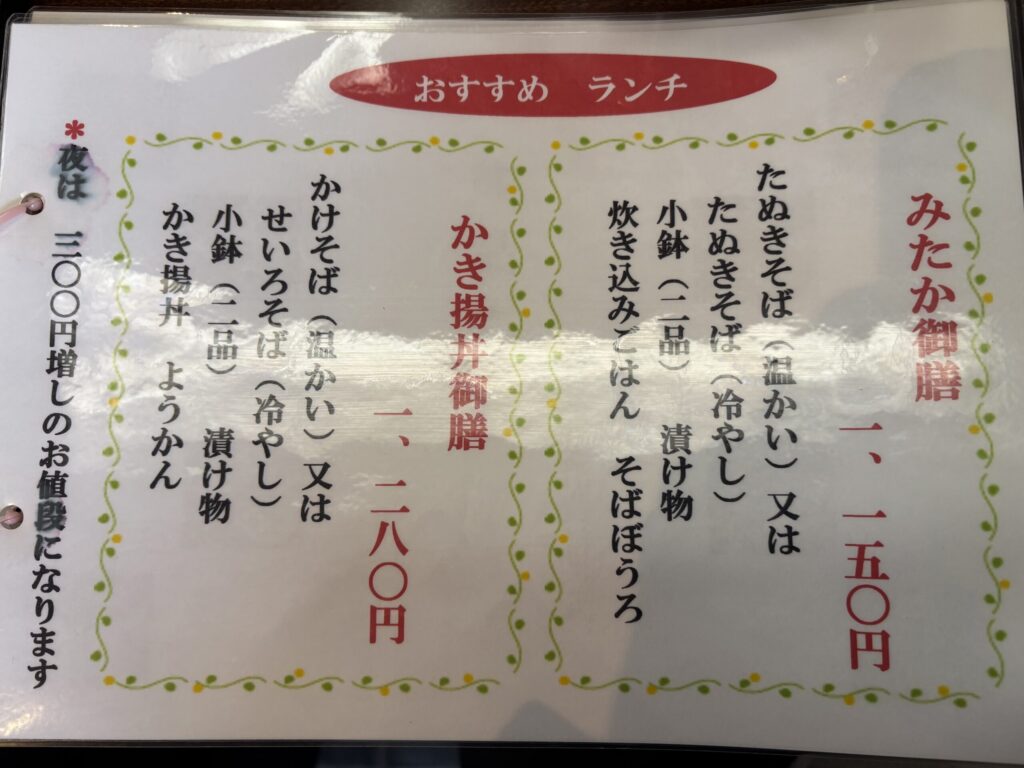 おすすめ　ランチ
みたか御膳
一、一五〇円
たぬきそば（温かい）又は
たぬきそば（冷やし）
小鉢（二品）　漬け物
炊き込みごはん　そばぼうろ
かき揚丼御膳
一、二八〇円
かけそば（温かい）又は
せいろそば（冷やし）
小鉢（二品）　漬け物
かき揚丼　ようかん
＊夜は　三〇〇円増しのお値段になります